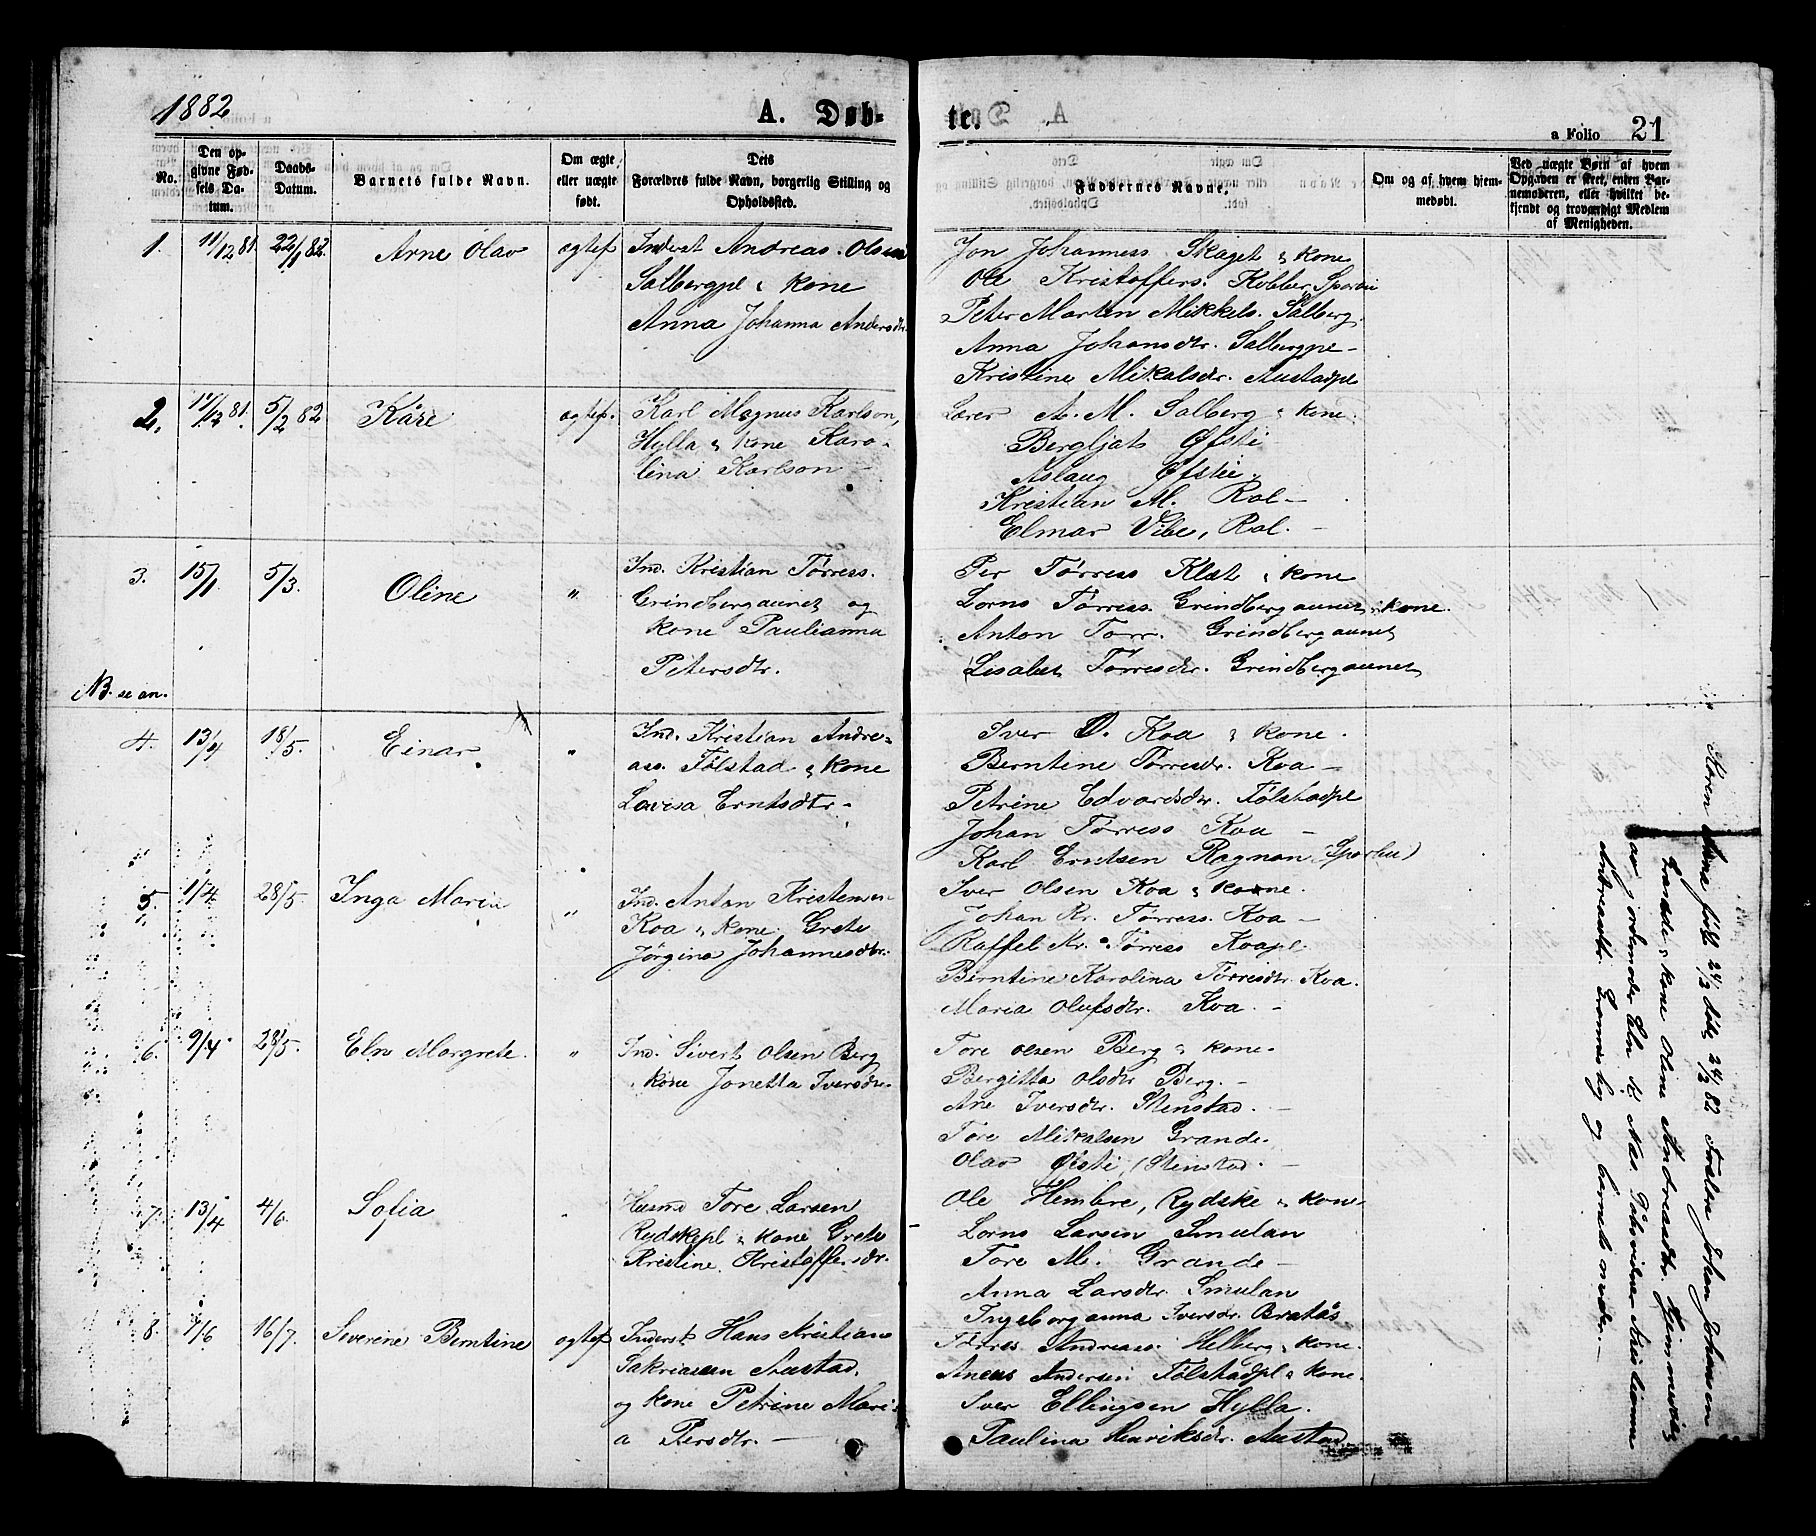 1882
A. Døb-
te.
a Folio 21
No.
Den op-
givne Fød-
sels Da-
tum.
Daabs-
Datum.
Barnets fulde Navn.
Om ægte
eller uægte
født.
Dets
Forældres fulde Navn, borgerlig Stilling og
Opholdssted.
Faddernes Navne.
Om og af hvem hjem-
medøbt.
Ved uægte Børn af hvem
Opgaven er skeet, enten Bar-
nemoderen, eller hvilket be-
kjendt og troværdigt Medlem
af Menigheden.
1. 11/12 81. 22/1 82. Arne Olav ægtef
Inderst Andreas Olsen
Salbergpl & kone
Anna Johanna Andersdtr.
Jon Johanness. Skaget & kone
Ole Kristoffers. Kobber, Sparbu
Peter Martin Mikkels. Salberg.
Anna Johansdtr. Salbergpl -
Kristine Mikalsdr. Austadpl
2. 17/12 81. 5/2 82 Kåre ægtef.
Karl Magnus Karlson,
Hylla & kone Karo-
lina Karlson -
Lærer A. M. Salberg & kone.
Bergljot Øfsti
Aslaug Øfsti
Kristian M. Rol -
Elmar Vibe, Rol. -
3. 15/1 5/3. Oline "
Ind. Kristian Tørress.
Grindbergaunet og
kone Paulianna
Petersdtr.
Per Tørress Klæt & kone
Lorns Tørress. Grindbergaunet & kone.
Anton Torr. Grindbergaunet
Lisabet Tørresdtr. Grindbergaunet
NB. se an.
4. 13/4 18/5. Einar "
Ind. Kristian Andre-
ass. Følstad & kone
Lovisa Erntsdtr -
Iver O. Koa & kone.
Berntine Tørresdr. Koa -
Petrine Edvardsdr. Følstadpl
Johan Tørress Koa -
Karl Erntsen Ragnan (Sparbu)
5. 1/4 28/5. Inga Maria "
Ind. Anton Kristensen
Koa & kone Grete
Jørgina Johannesdtr.
Iver Olsen Koa & kone.
Johan Kr. Tørress. Koa -
Raffel Kr. Tørress Koapl.
Berntine Karolina Tørresdtr. Koa.
Maria Olufsdtr. Koa. -
6. 9/4 28/5. Eln Margrete. "
Ind. Sivert Olsen Berg
& kone Jonetta Iversdtr.
Tore Olsen Berg & kone.
Bergitta Olsdtr Berg. -
Ane Iversdtr. Stenstad. -
Tore Mikalsen Grande.
Olav Øfsti, Stenstad. -
7. 13/4 4/6. Sofia "
Husmd Tore Larsen
Rydskjpl & kone Grete
Kristine Kristoffersdr.
Ole Hembre, Rydske & kone
Lorns Larsen Smulan
Tore M. Grande -
Anna Larsdtr. Smulan
Ingeborganna Iversdr. Bratås
8. 16/7. Severine Berntine ægtef
Inderst Hans Kristian
Sakriassen Austad
og kone Petrine Mari-
a Persdtr. -
Tørres Andreass. Helberg & kone.
Aneus Andersen Følstadpl & kone.
Iver Ellingsen Hylla.
Paulina Henriksdr. Austad
Karen Anna født 24/2 døbt 24/2 82 Forældre Johan Johansen
& kone Oline Andreasdtr. Hjemmedøbt
av jordemoder Eln K. Næs
og barnets moder. -